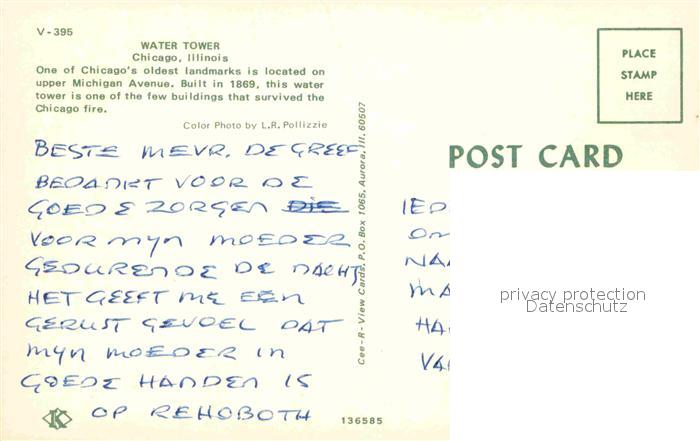 V-395
WATER TOWER
Chicago, Illinois
One of Chicago's oldest landmarks is located on
upper Michigan Avenue. Built in 1869, this water
tower is one of the few buildings that survived the
Chicago fire.
Color Photo by L.R. Pollizzie
BESTE MEVR. DE GREEF
BEDANKT VOOR DE
GOEDE ZORGEN DIE
VOOR MYN MOEDER
GEDURENDE DE NACHT
HET GEEFT ME EEN
GERUST GEVOEL DAT
MYN MOEDER IN
GOEDE HANDEN IS
OP REHOBOTH
K
136585
Cee-R-View Cards, P.O. Box 1065, Aurora, Ill. 60507
PLACE
STAMP
HERE
POST CARD
IED
OM
NAA
MA
HA
VA
privacy protection
Datenschutz